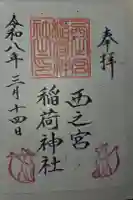 奉拝
西之宮
稲荷神社
令和八年三月十四日